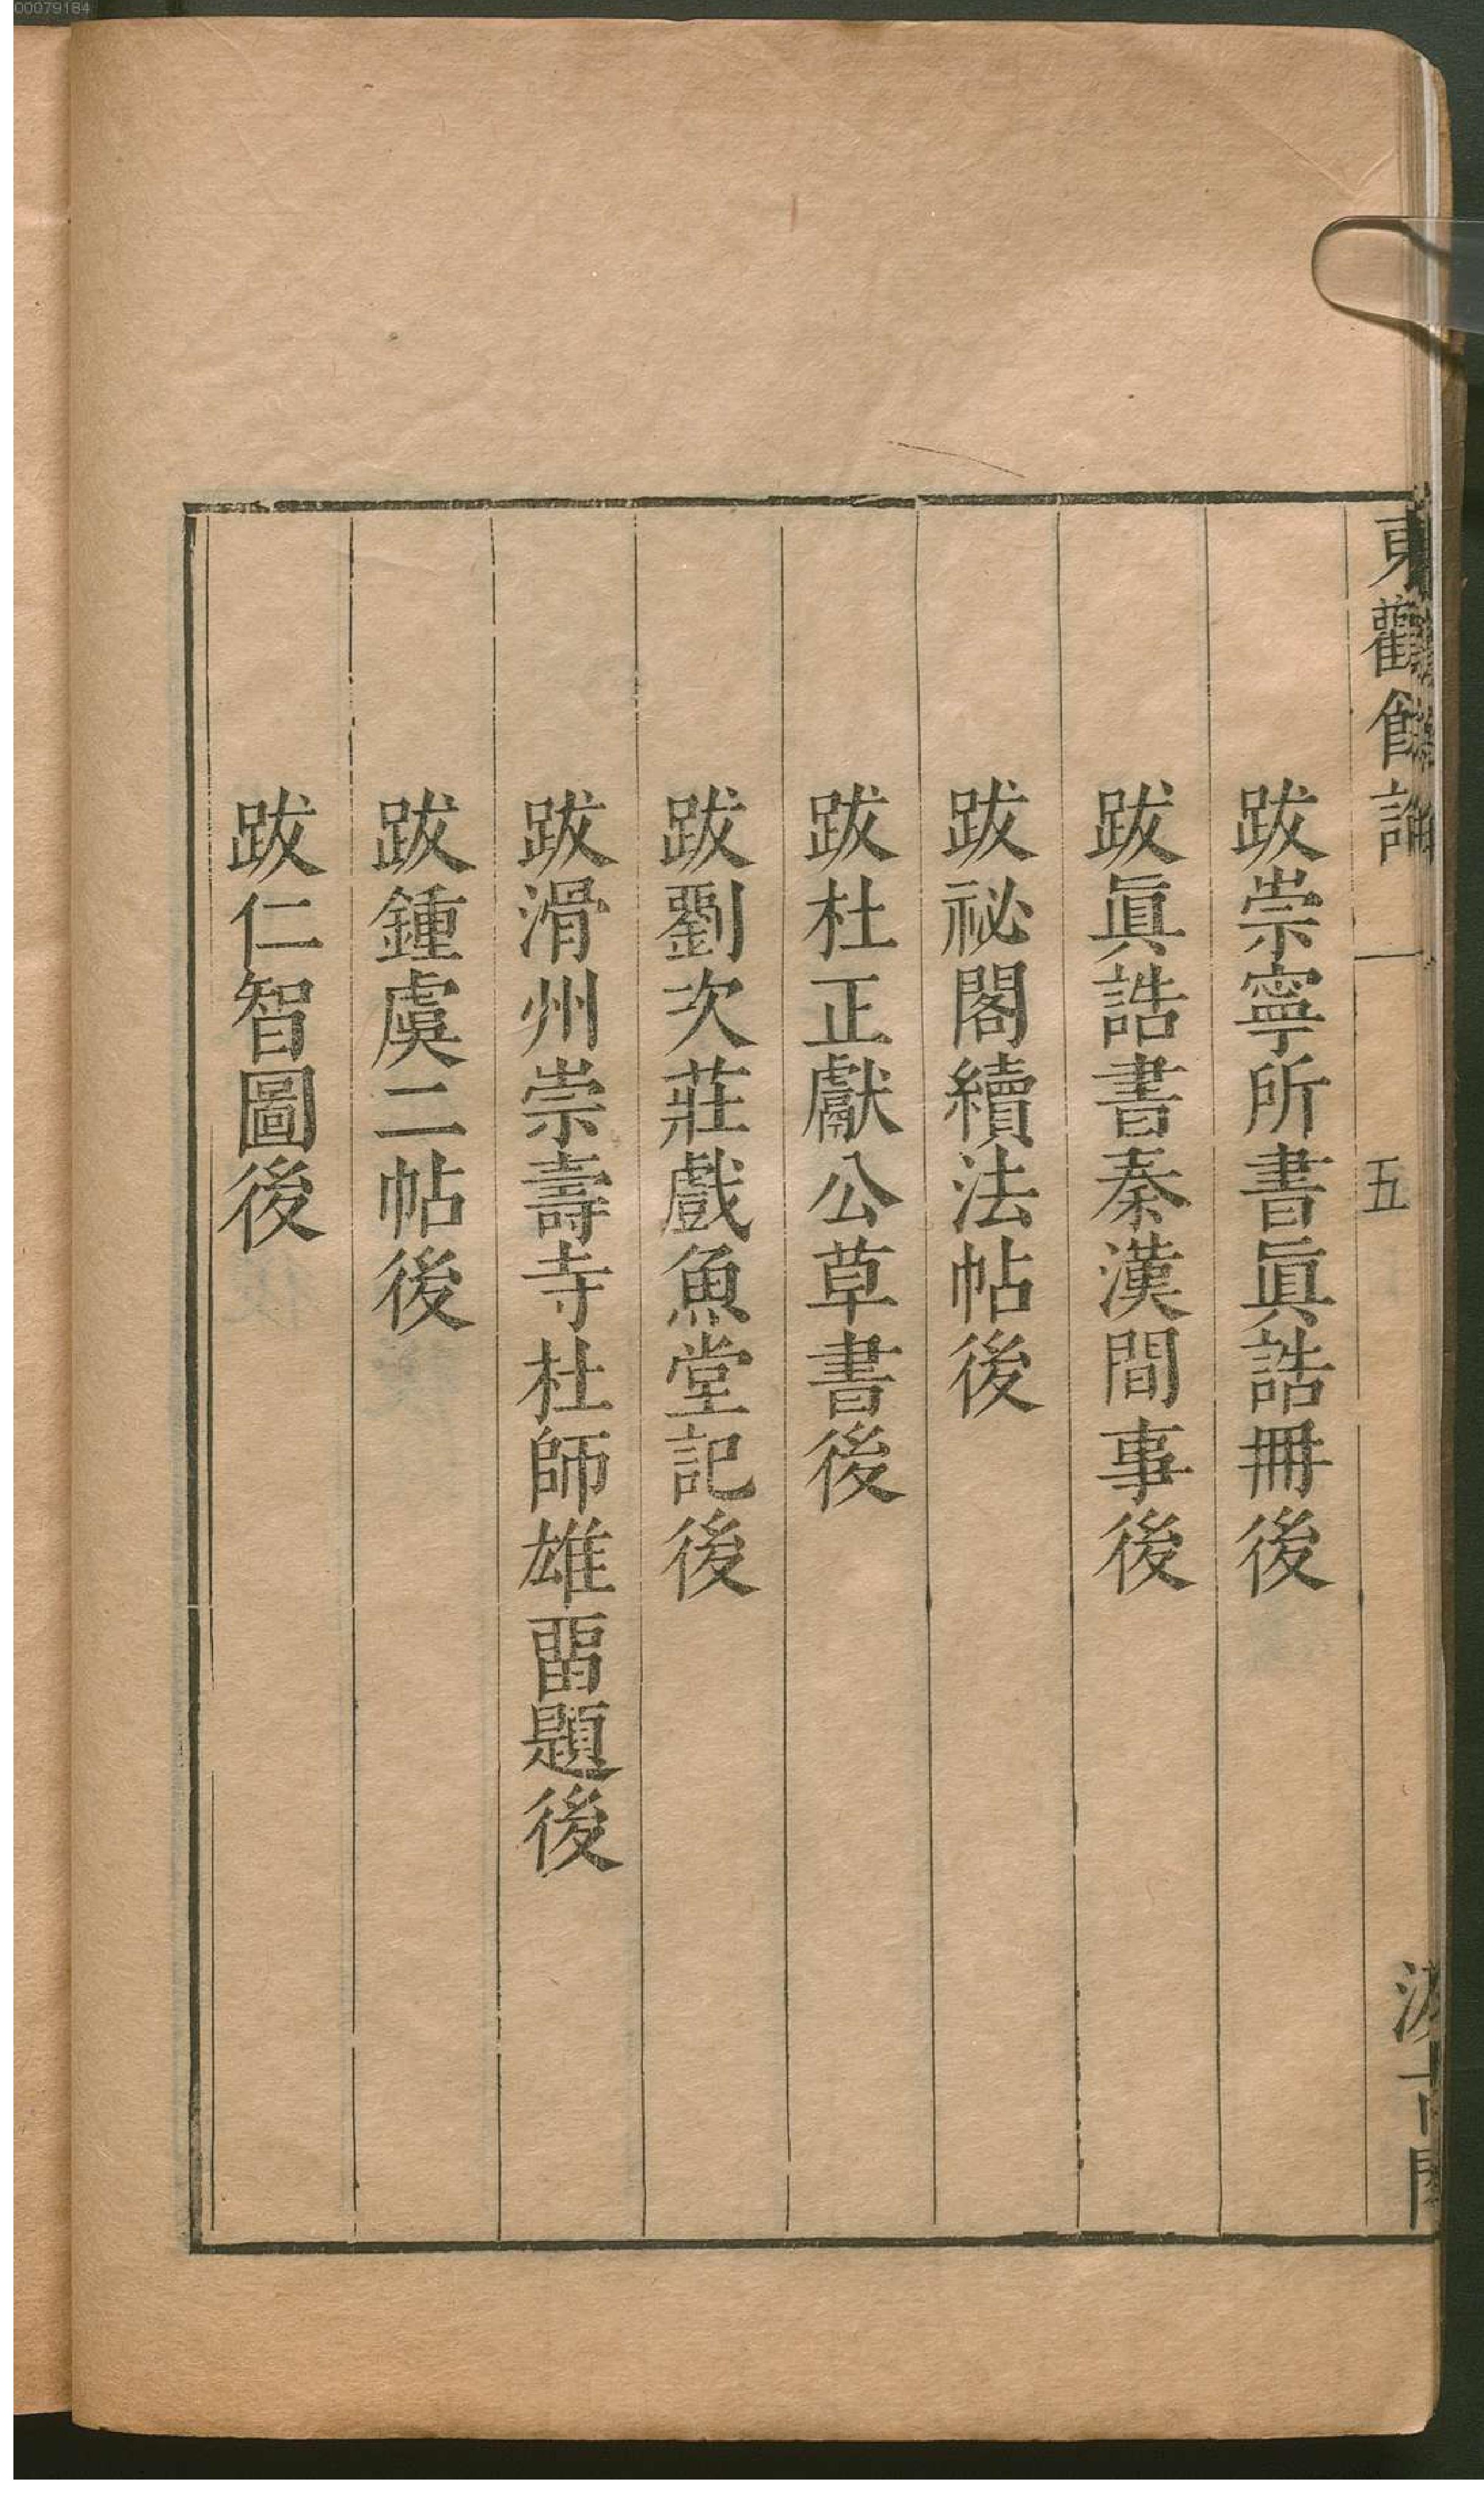 東觀餘論 一 五 汲古閣
跋崇寧所書眞誥冊後
跋眞誥書秦漢間事後
跋祕閣續法帖後
跋杜正獻公草書後
跋劉次莊戲魚堂記後
跋滑州崇壽寺杜師雄畱題後
跋鍾虞二帖後
跋仁智圖後
00079184